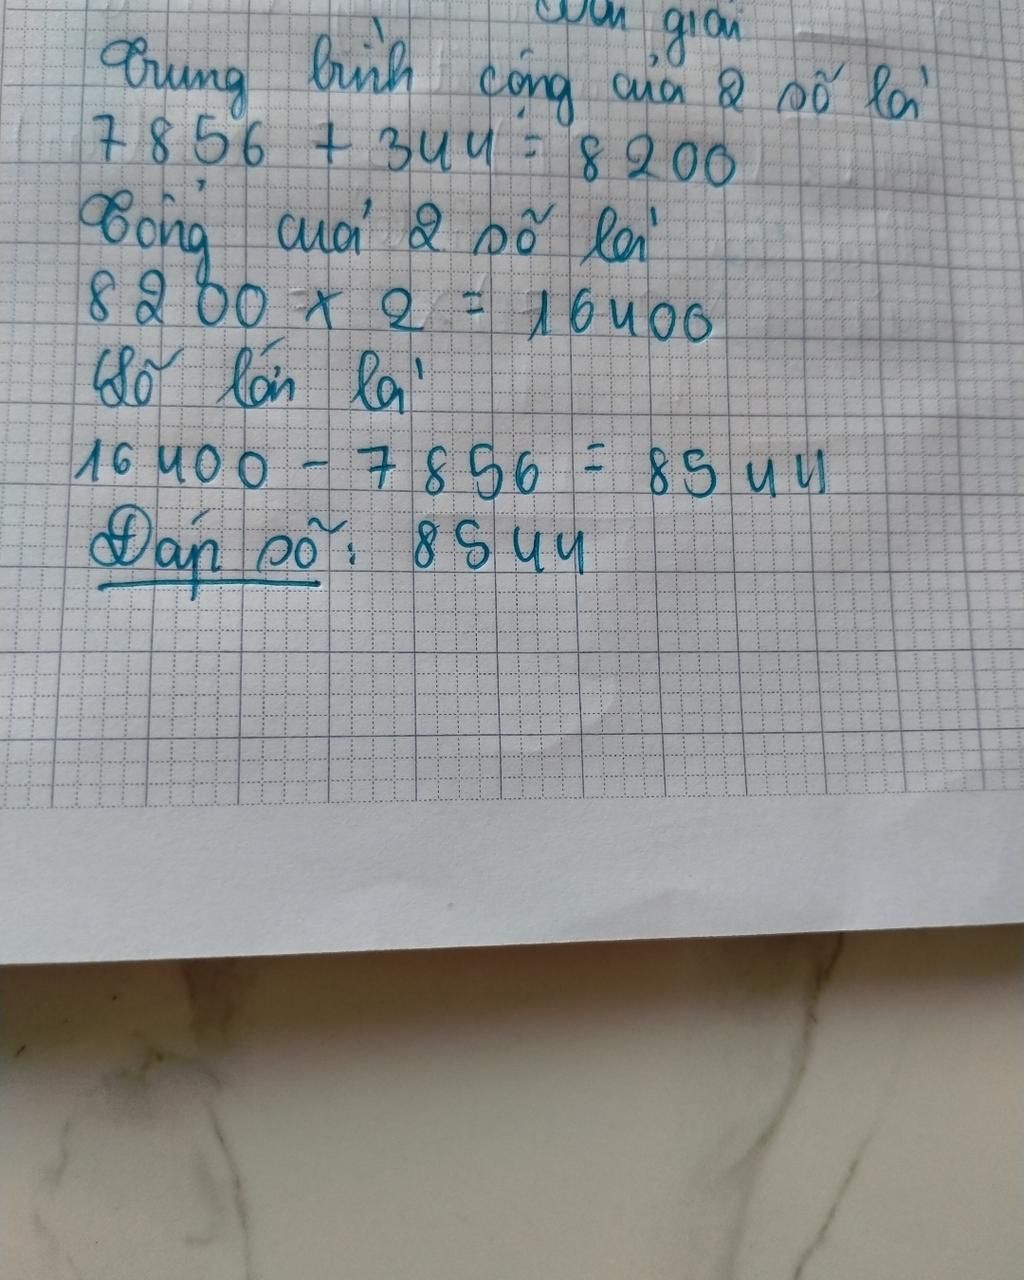 giải
Trung bình cộng của 2 số là
7856 + 344 = 8200
Tổng của 2 số là
8200 x 2 = 16400
Số lớn là
16400 - 7856 = 8544
Đáp số: 8544